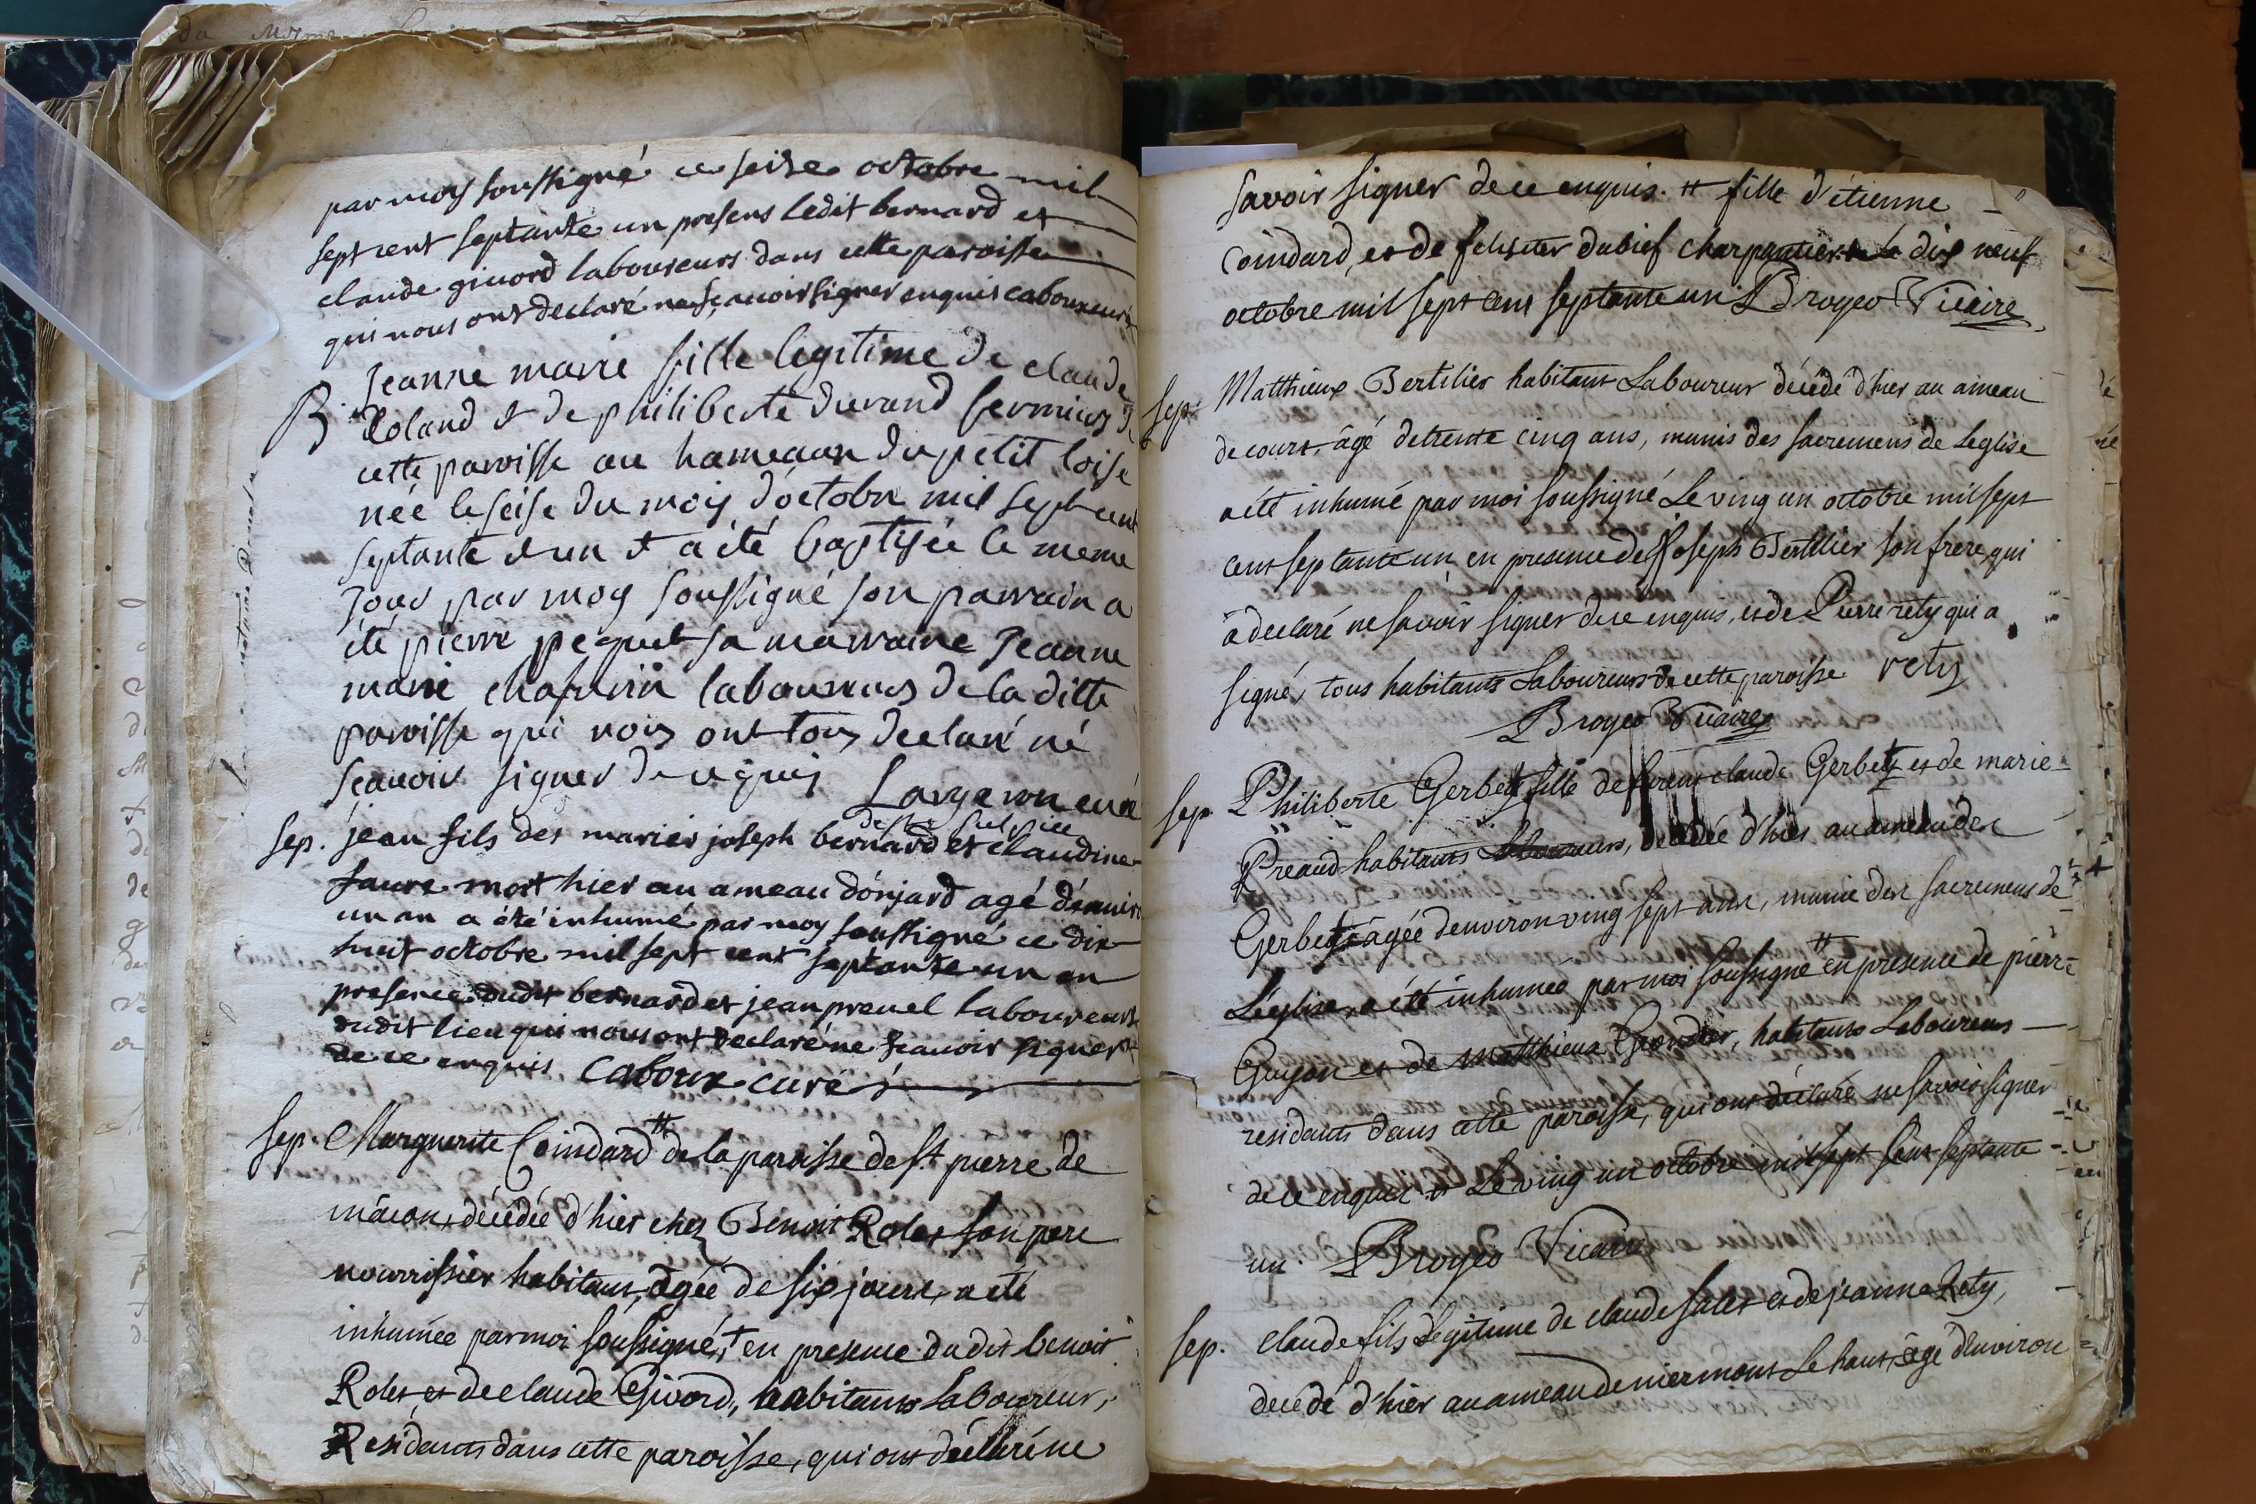 par moy soussigné ce seise octobre mil
sept cent septante un presens ledit bernard et
claude givord laboureurs dans cette paroisse
qui nous ont declaré ne sçavoir signer enquis caboux curé
B. Jeanne marie fille legitime de claude
Roland et de philiberte durand fermiers de
cette paroisse au hameaau du petit loise
née le seise du mois d'octobre mil sept cent
septante et un et a été baptisée le meme
jour par moy soussigné son parrain a
été pierre pequet sa marraine Jeanne
marie chafurin laboureurs de la ditte
paroisse qui nois ont tous declaré né
sçavoir signer de ce quis
Largeron curé
de
sep. jean fils des mariés joseph bernard et claudine
faure mort hier au ameau dónjard agé d'enviro
un an a été inhumé par moy soussigné ce dix
huit octobre mil sept cent septante un en
presence dudit bernard et jean prevel laboureurs
dudit lieu qui nous ont declaré ne sçavoir signer
de ce enquis caboux curé
sep. Marguerite Coindard # de la paroisse de st. pierre de
mâcon, décédée d'hier chez Benoit Rolet son pere
nourrissier habitant, âgée de six jours, a été
inhumée par moi soussigné, † en presence dudit benoit
Rolet, et de claude Givord, habitants Laboureur,
Residants dans cette paroisse, qui ont déclaré ne
savoir signer de ce enquis. # fille d'étienne
Coindard, et de dubief charpantier. † le dix neuf
octobre mil sept cent septante un Broyer Vicaire
sep. Matthieux Bertilier habitant Laboureur décédé d'hier au ameau
de court, âgé de trente cinq ans, munis des sacremens de Leglise
a été inhumé par moi soussigné Le ving un octobre mil sept
cent septante un en presence de Joseph Bertilier son frere, qui
a declaré ne savoir signer de ce enquis, et de Pierre rety qui a
signé, tous habitants Laboureurs de cette paroisse rety
Broyer Vicaire
sep. Philiberte Gerbet fille de claude Gerbet et de marie
Preaud habitants Laboureurs, décédée d'hier au ameau des
Gerbets âgée d'environ ving sept ans, munie des sacremens de
L'église, a été inhumée par moi soussigné # en presence de pierre
Guyon et de Matthieux habitants Laboureurs
residants dans cette paroisse, qui ont déclaré ne savoir signer
de ce enquis # Le ving un octobre mil sept Cent septante
un. Broyer Vicaire
sep. claude fils Légitime de claude salet et de jeanne Rety,
décédé d'hier au ameau de niermont Le haut, âgé d'environ